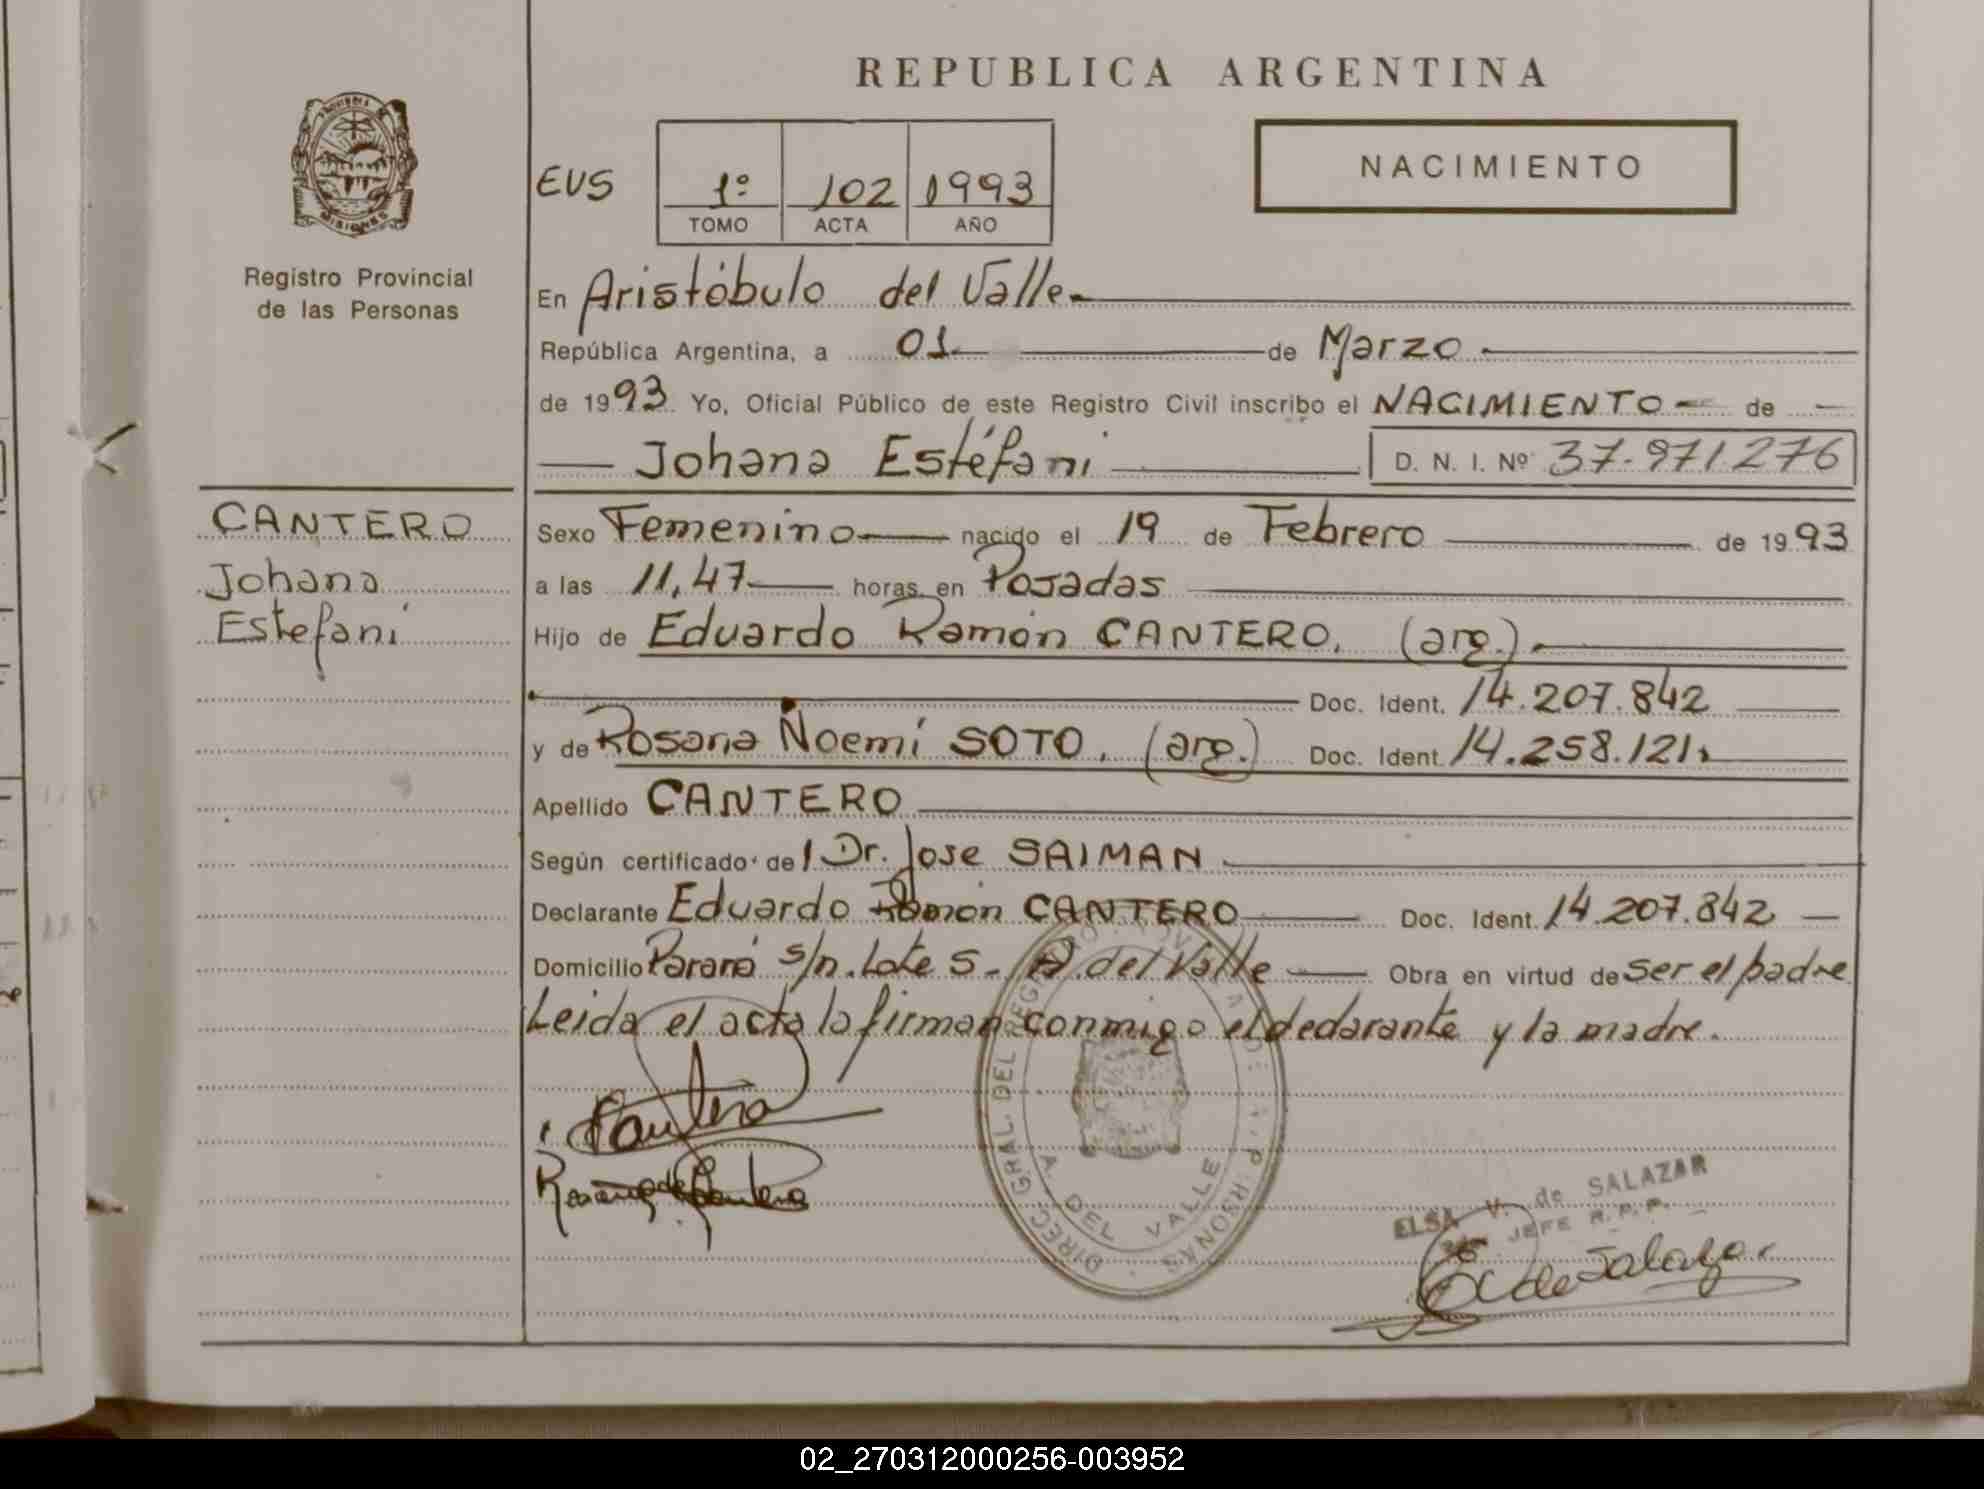 REPUBLICA ARGENTINA
MISIONES
Registro Provincial
de las Personas
NACIMIENTO
EVS
1º 102 1993
TOMO ACTA AÑO
En Aristóbulo del Valle.
República Argentina, a 01 de Marzo
de 1993 Yo, Oficial Público de este Registro Civil inscribo el NACIMIENTO de
Johana Estéfani D. N. I. Nº 37.971.276
CANTERO
Johana
Estefani
Sexo Femenino nacido el 19 de Febrero de 1993
a las 11,47 horas, en Posadas
Hijo de Eduardo Ramón CANTERO. (arg.).
Doc. Ident. 14.207.842
y de Rosana Noemí SOTO. (arg.) Doc. Ident. 14.258.121.
Apellido CANTERO
Según certificado de l Dr. Jose SAIMAN
Declarante Eduardo Ramón CANTERO Doc. Ident. 14.207.842
Domicilio Paraná s/n. Lote 5. A. del Valle Obra en virtud de ser el padre
Leida el acta la firman conmigo el declarante y la madre.
Cantero
Rosana de Cantero
DIREC. GRAL. DEL REGISTRO
A. DEL VALLE
ELSA V. de SALAZAR
JEFE R.P.P.
E V de Salazar
02_270312000256-003952